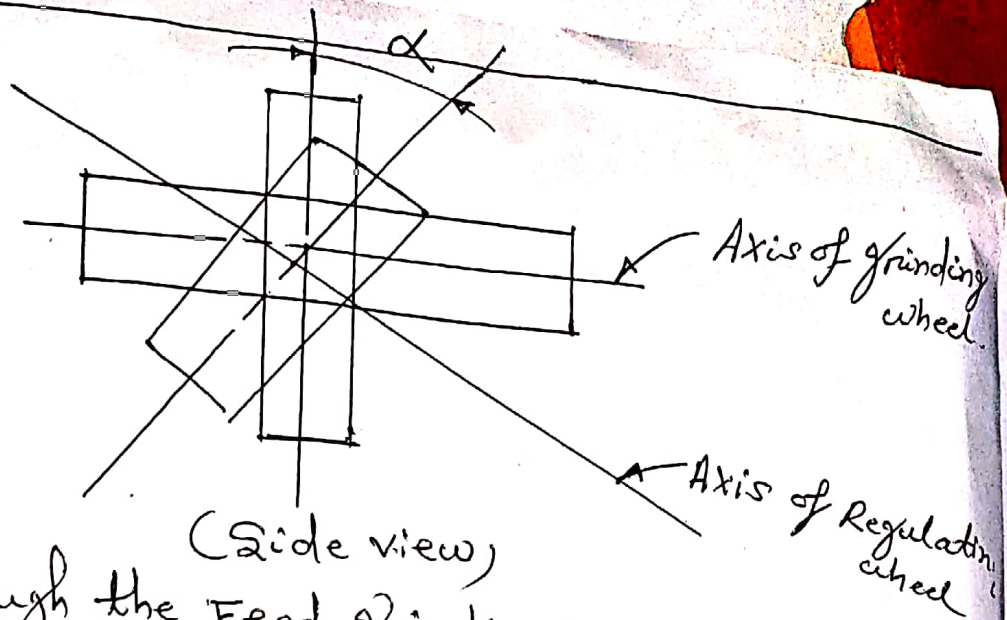 α
Axis of grinding
wheel.
Axis of Regulatin
wheel
(Side view)
ugh the Feed